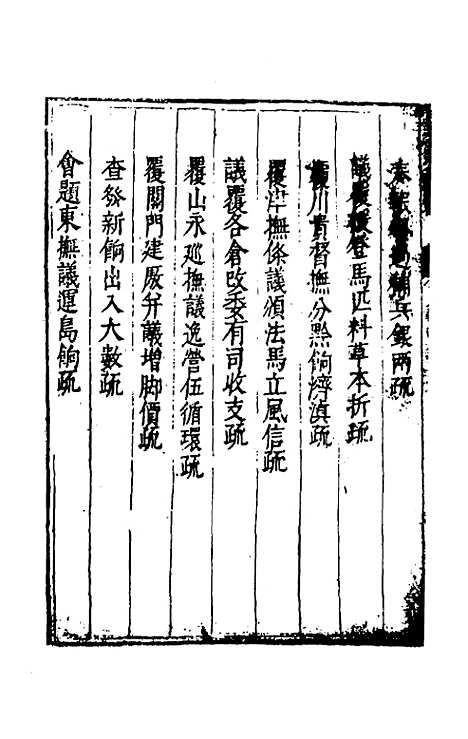 補兵銀兩疏
議覆援登馬匹料草本折疏
覆川貴督撫分黔餉濟滇疏
覆津撫條議頒法馬立風信疏
議覆各倉改委有司收支疏
覆山永巡撫議逸營伍循環疏
覆關門建厫弁議增脚價疏
查發新餉出入大數疏
會題東撫議運島餉疏